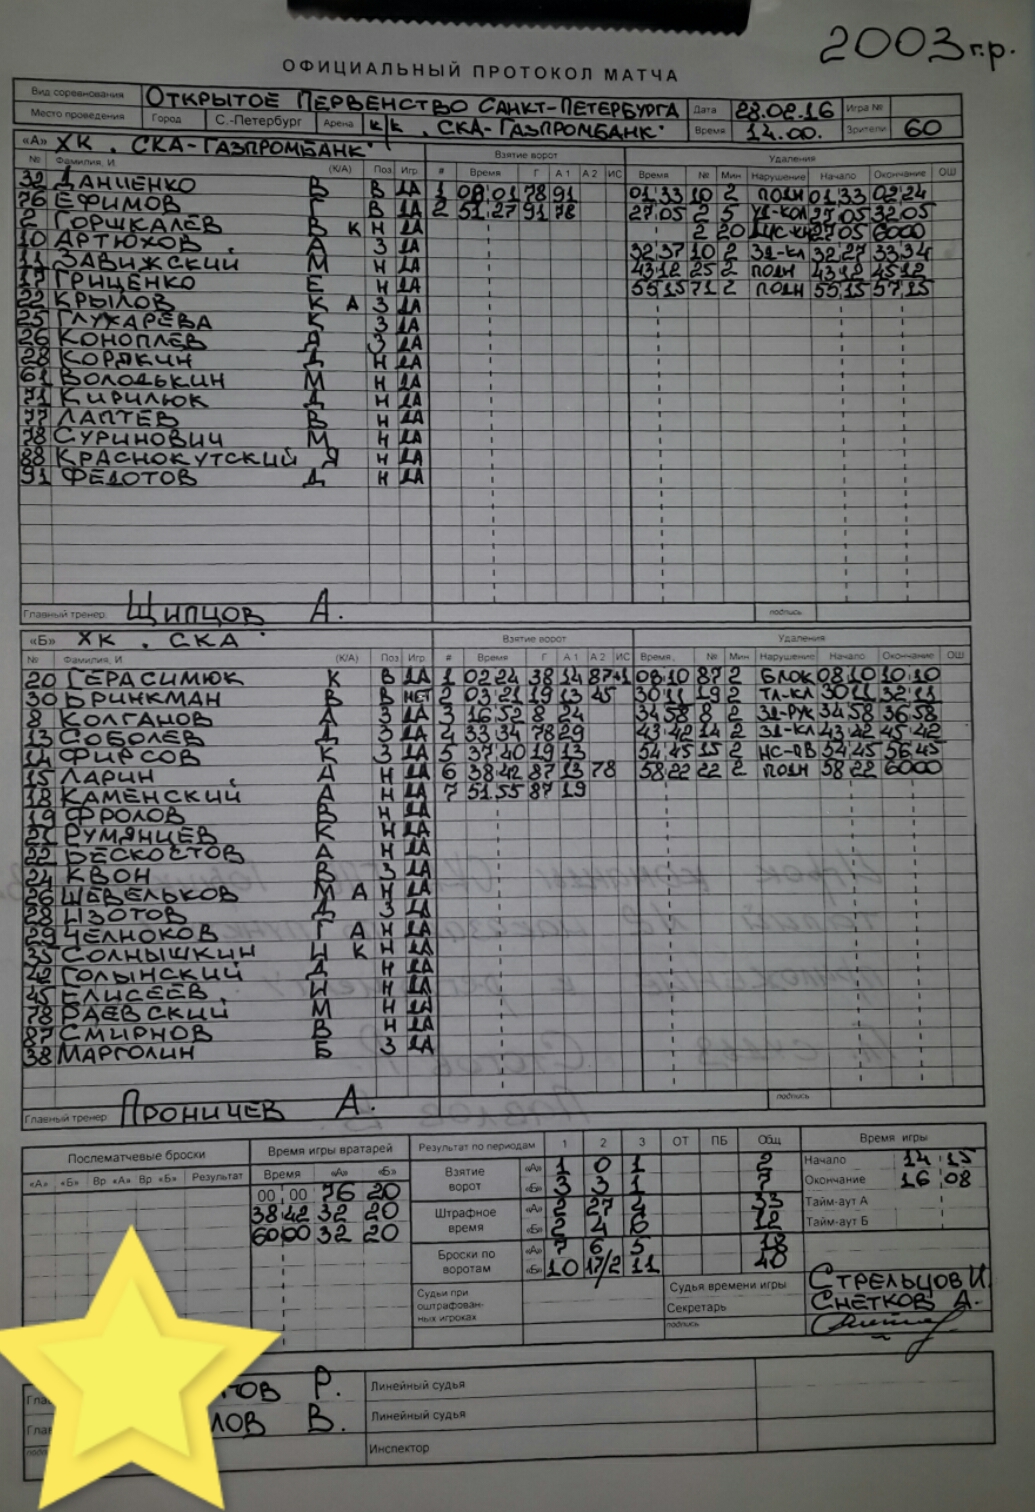 2003 г.р.
ОФИЦИАЛЬНЫЙ ПРОТОКОЛ МАТЧА
Вид соревнования ОТКРЫТОЕ ПЕРВЕНСТВО САНКТ-ПЕТЕРБУРГА Дата 28.02.16 Игра №
Место проведения Город С.-Петербург Арена К/К "СКА-ГАЗПРОМБАНК" Время 14.00. Зрители 60
«А» ХК "СКА-ГАЗПРОМБАНК" Взятие ворот Удаления
№ Фамилия, И (К/А) Поз Игр # Время Г А1 А2 ИС Время № Мин Нарушение Начало Окончание ОШ
32 ДАНИЕНКО В В ДА 1 08 01 78 91 01 33 10 2 ПОДН 01 33 02 24
76 ЕФИМОВ Г В ДА 2 51 27 91 78 27 05 2 5 УД-КОЛ 27 05 32 05
2 ГОРШКАЛЕВ В К Н ДА 2 20 27 05 6000
10 АРТЮХОВ А З ДА 32 37 10 2 ЗД-КЛ 32 27 33 34
11 ЗАВИЖСКИЙ М Н ДА 43 12 25 2 ПОДН 43 12 45 12
17 ГРИЦЕНКО Е Н ДА 55 15 71 2 ПОДН 55 15 57 15
22 КРЫЛОВ К А З ДА
25 ГЛУХАРЕВА К З ДА
26 КОНОПЛЕВ Д З ДА
28 КОРЯКИН Д Н ДА
61 ВОЛОДЬКИН М Н ДА
71 КИРИЛЮК Д Н ДА
77 ЛАПТЕВ В Н ДА
78 СУРИНОВИЧ М Н ДА
88 КРАСНОКУТСКИЙ Я Н ДА
91 ФЕДОТОВ Д Н ДА
Главный тренер ЩИПЦОВ А. подпись
«Б» ХК "СКА" Взятие ворот Удаления
№ Фамилия, И (К/А) Поз Игр # Время Г А1 А2 ИС Время № Мин Нарушение Начало Окончание ОШ
20 ГЕРАСИМЮК К В ДА 1 02 24 38 14 87 +1 08 10 87 2 БЛОК 08 10 10 10
30 БРИНКМАН В В НЕТ 2 03 21 19 13 45 30 11 19 2 ТЛ-КЛ 30 11 32 11
8 КОЛГАНОВ А З ДА 3 16 52 8 24 34 58 8 2 ЗД-РУК 34 58 36 58
13 СОБОЛЕВ Д З ДА 4 33 34 78 29 43 42 14 2 ЗД-КЛ 43 42 45 42
14 ФИРСОВ К З ДА 5 37 40 19 13 54 45 15 2 НС-ПВ 54 45 56 45
15 ЛАРИН А Н ДА 6 38 42 87 13 78 58 22 22 2 ПОДН 58 22 6000
18 КАМЕНСКИЙ А Н ДА 7 51 55 87 19
19 ФРОЛОВ В Н ДА
21 РУМЯНЦЕВ К Н ДА
22 БЕСКОСТОВ А Н ДА
24 КВОН В З ДА
26 ШЕВЕЛЬКОВ М А Н ДА
28 ИЗОТОВ Д З ДА
29 ЧЕЛНОКОВ Г А Н ДА
35 СОЛНЫШКИН И К Н ДА
42 ГОЛЫНСКИЙ Д Н ДА
45 ЕЛИСЕЕВ И Н ДА
78 РАЕВСКИЙ М Н ДА
87 СМИРНОВ В Н ДА
38 МАРГОЛИН Б З ДА
Главный тренер ПРОНИЧЕВ А. подпись
Послематчевые броски Время игры вратарей Результат по периодам 1 2 3 ОТ ПБ Общ Время игры
«А» «Б» Вр «А» Вр «Б» Результат Время «А» «Б» Взятие ворот «А» 1 0 1 2 Начало 14 15
00 00 76 20 «Б» 3 3 1 7 Окончание 16 08
38 42 32 20 Штрафное время «А» 2 27 4 33 Тайм-аут А
6000 32 20 «Б» 2 4 6 12 Тайм-аут Б
Броски по воротам «А» 7 6 5 18
«Б» 10 17/2 11 40
Судьи при оштрафованных игроках Судья времени игры СТРЕЛЬЦОВ И.
Секретарь СНЕТКОВ А.
подпись
ОВ Р. Линейный судья
ЛОВ В. Линейный судья
Инспектор